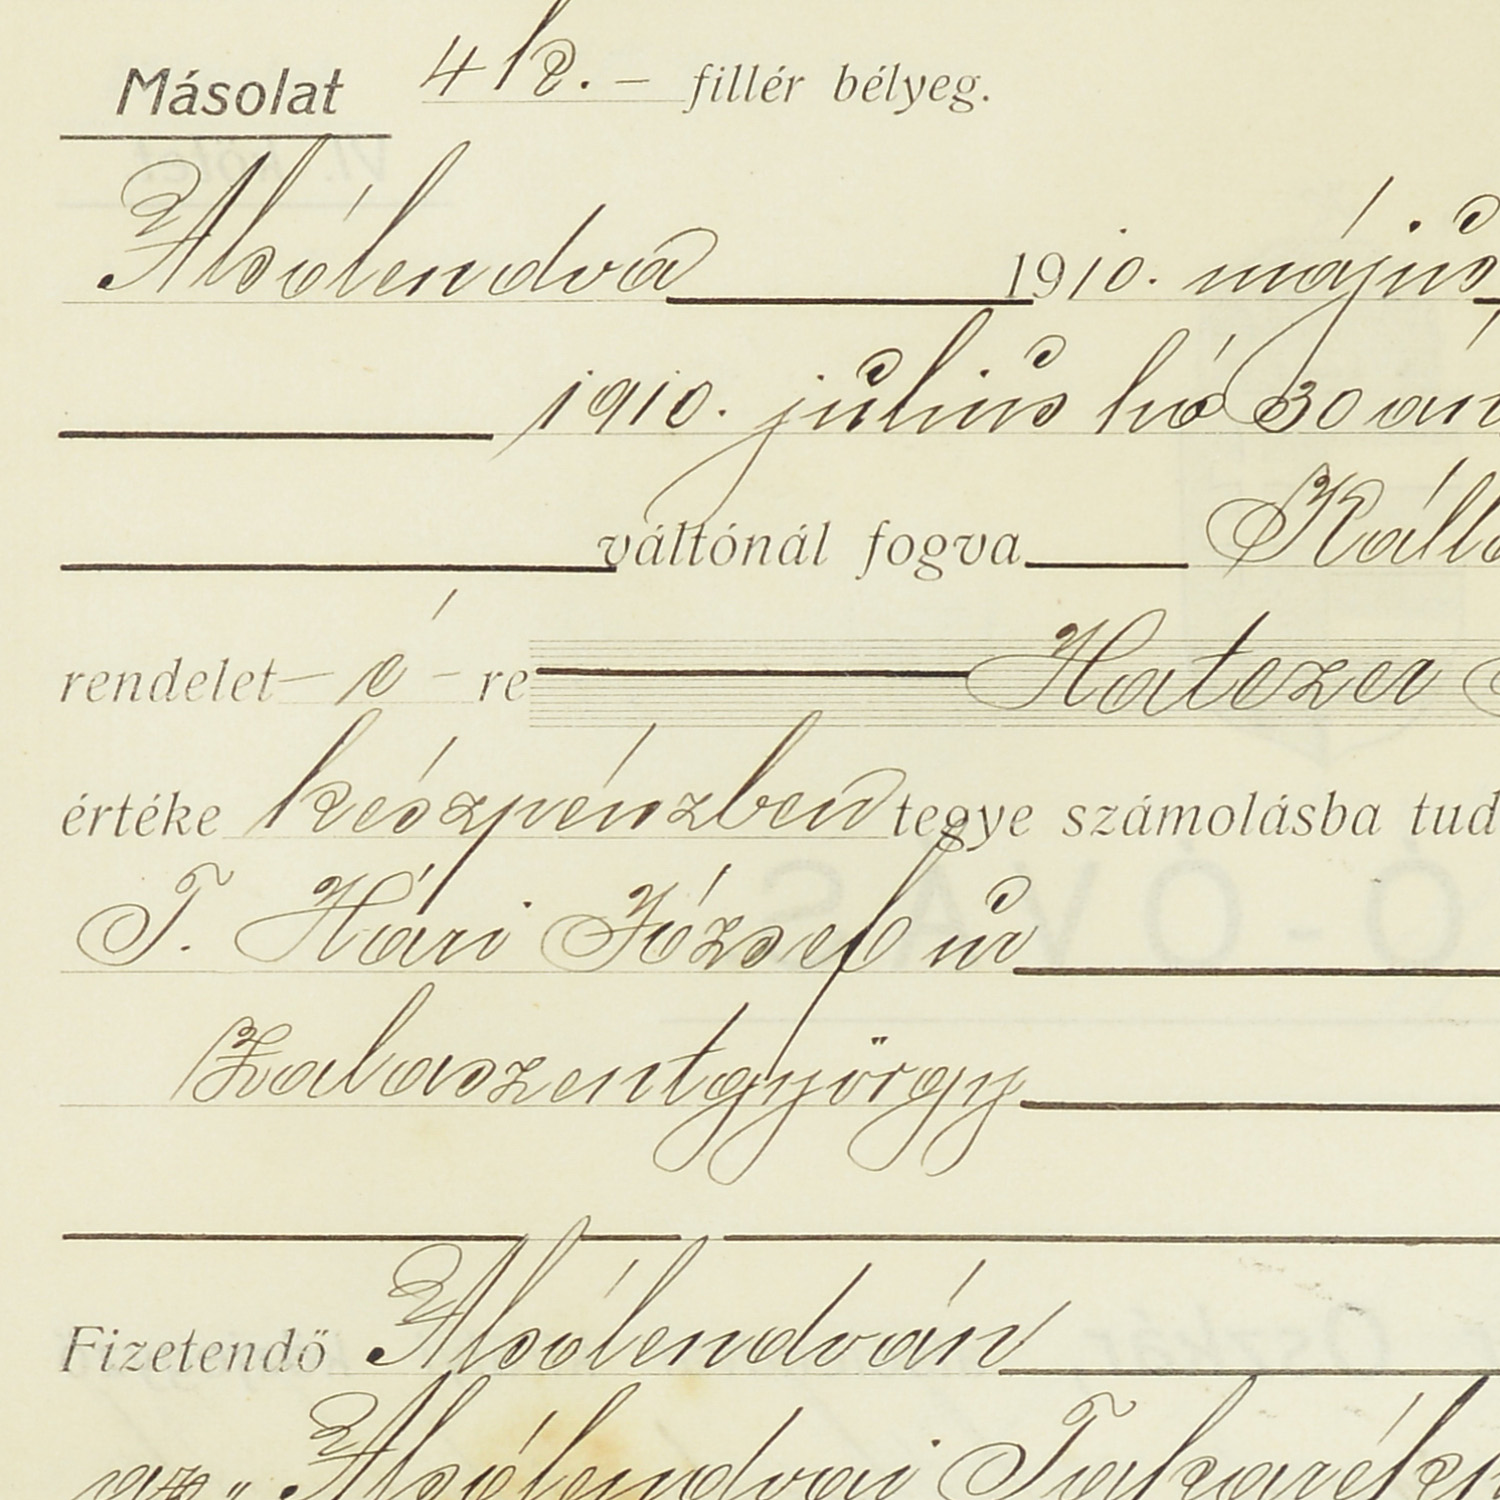 Másolat 4 k. – fillér bélyeg.
Alsólendva 1910. május
1910. július hó 30 án
váltónál fogva
rendelet – é – re Hatezer
értéke készpénzben tegye számolásba tud
T. Hári József úr
Zalaszentgyörgy
Fizetendő Alsólendván
az „Alsólendvai